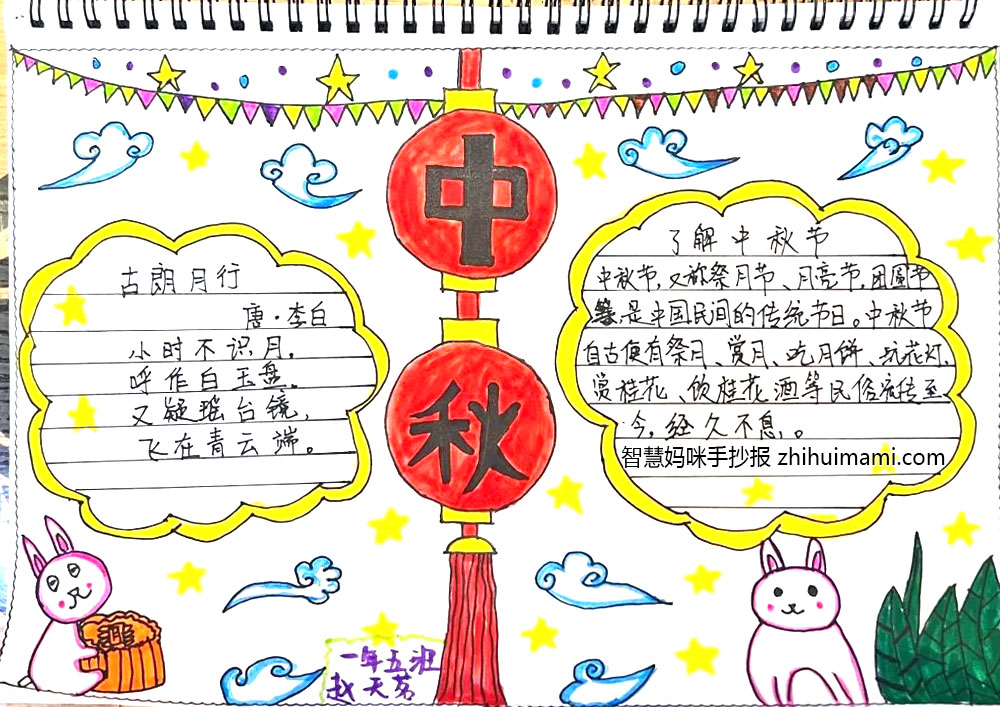 中
秋
古朗月行
唐·李白
小时不识月，
呼作白玉盘。
又疑瑶台镜，
飞在青云端。
了解中秋节
中秋节，又称祭月节、月亮节，团圆节
等，是中国民间的传统节日。中秋节
自古便有祭月、赏月、吃月饼、玩花灯，
赏桂花、饮桂花酒等民俗流传至
今，经久不息。
智慧妈咪手抄报 zhihuimami.com
一年五班
赵天茗